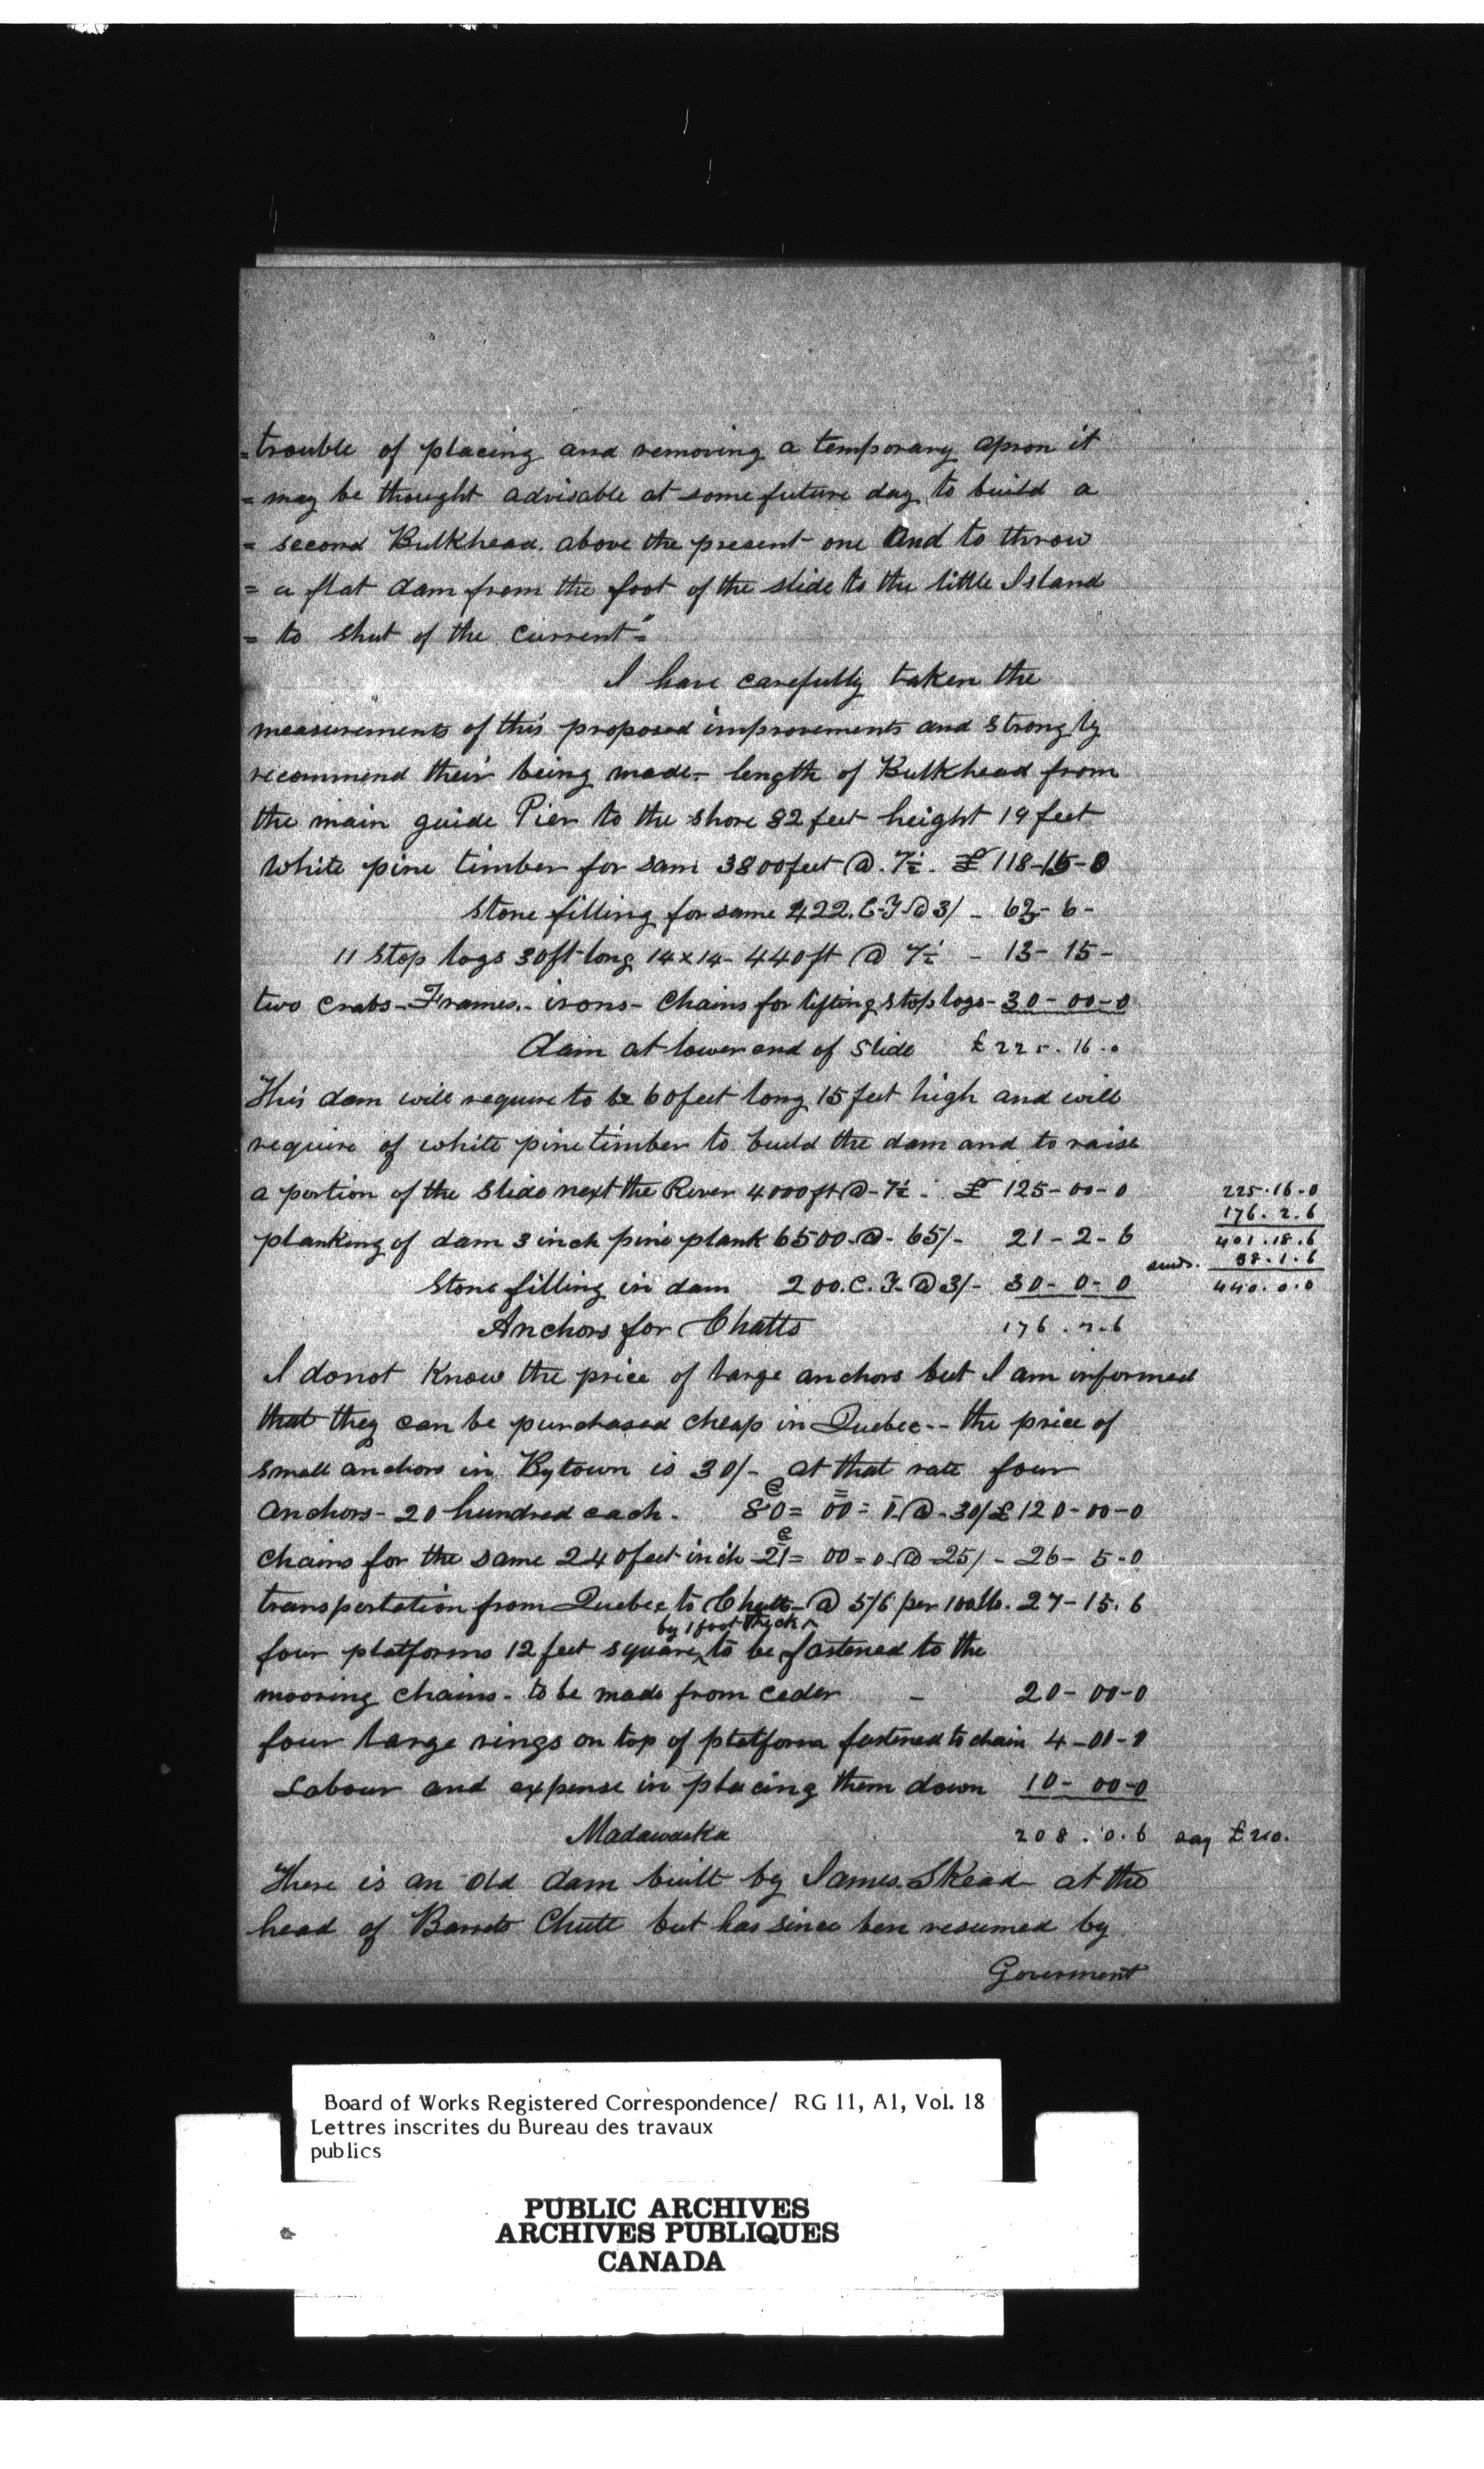 =trouble of placing and removing a temporary apron it
= may be thought advisable at some future day to build a
= second Bulkhead above the present one And to throw
= a flat dam from the foot of the slide to the little Island
= to shut of the current"=
I have carefully taken the
measurements of this proposed improvements and strongly
recommend their being made - length of Bulkhead from
the main guide Pier to the shore 82 feet height 19 feet
White pine timber for sam 3800 feet @ 7½ - £ 118-15-0
Stone filling for same 422. C.F @ 3/ - 63-6-
11 Stop logs 30ft long 14x14 - 440 ft @ 7½ - 13-15-
two Crabs - Frames - irons - Chains for lifting stop logs - 30-00-0
Dam at lower end of Slide £225.16.0
This dam will require to be 60 feet long 15 feet high and will
require of white pine timber to build the dam and to raise
a portion of the Slide next the River 4000 ft @ 7½ - £ 125-00-0
225.16-0
176.2.6
planking of dam 3 inch pine plank 6500 @ 65/- 21-2-6
401.18.6
38.1.6
Stone filling in dam 200. C. F. @ 3/- 30-0-0
440.0.0
Anchors for Chatts 176.2.6
I donot Know the price of large anchors but I am informed
that they can be purchased cheap in Quebec -- the price of
small anchors in Bytown is 30/- at that rate four
anchors - 20 hundred each - 80 = 00 = 0 @ 30/ £120-00-0
chains for the same 240 feet inch 21 = 00 = 0 @ 25/ - 26-5-0
transportation from Quebec to Chatts @ 5/6 per 100 lb. 27-15.6
by 1 foot thick
four platforms 12 feet square, to be fastened to the
mooring chains - to be made from Ceder - 20-00-0
four large rings on top of platform fastened to chain 4-00-0
Labour and expense in placing them down 10-00-0
Madawaska 208.0.6 say £210.
There is an old dam built by James Skead at the
head of Barrets Chute but has since ben resumed by
Goverment
Board of Works Registered Correspondence/ RG 11, A1, Vol. 18
Lettres inscrites du Bureau des travaux
publics
PUBLIC ARCHIVES
ARCHIVES PUBLIQUES
CANADA